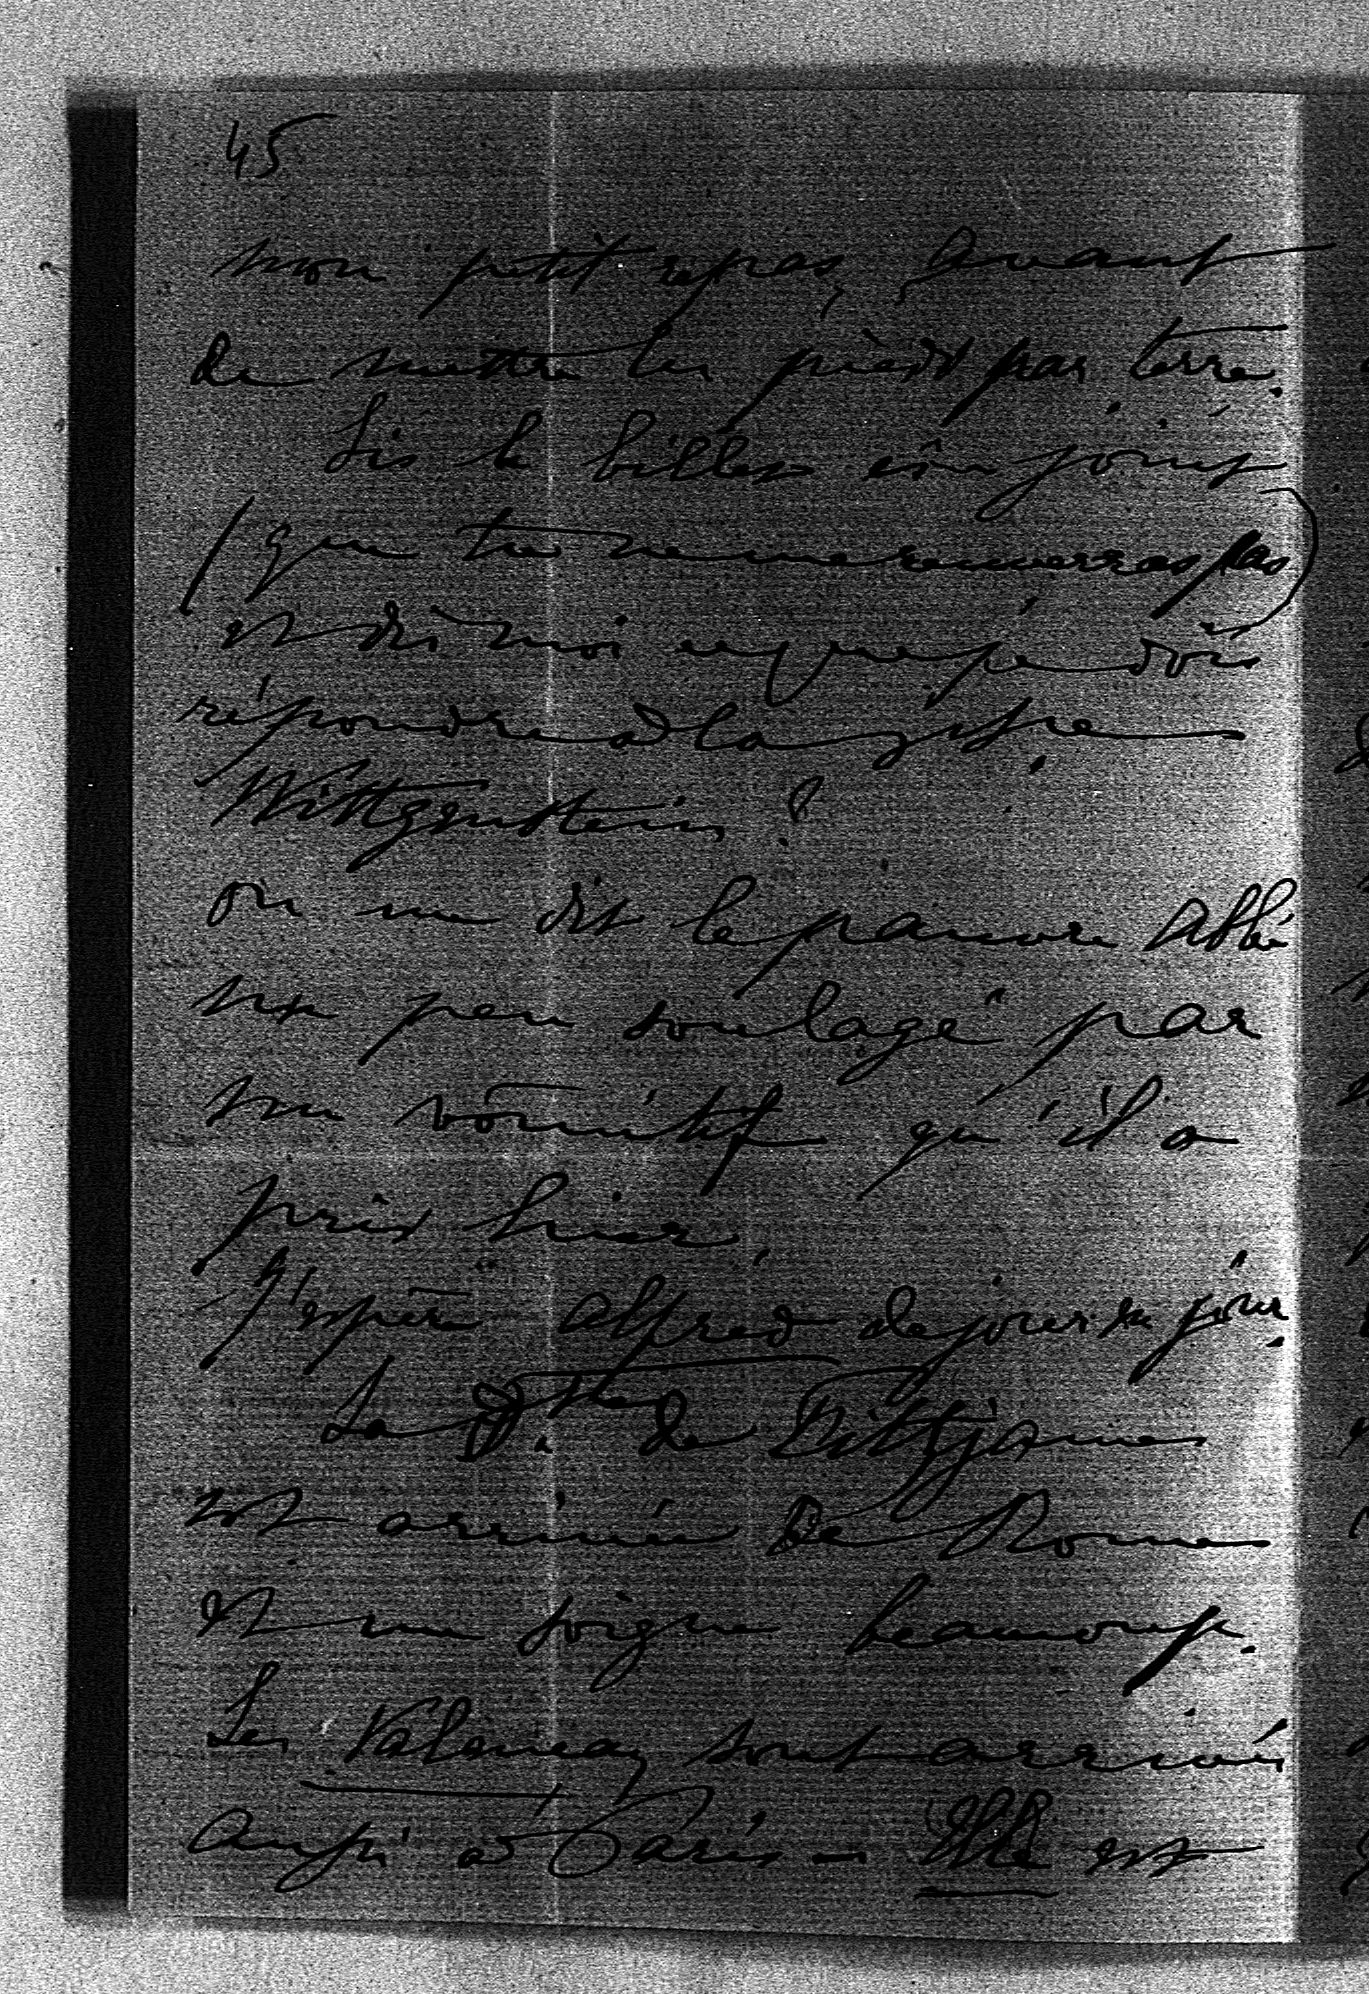 45
mon petit repas, avant
de mettre les pieds par terre.
Lis le billet ci-joint
(que tu ne me renverras pas)
et dis moi ce que je dois
répondre à la pse
Wittgenstein ?
on me dit le pauvre abbé
un peu soulagé par
un vomitif qu'il a
pris hier.
J'espère Alfred de jour en jour.
La Dsse de Fittzjames
est arrivée de Rome
et me soigne beaucoup.
Les Valençay sont arrivés
aussi à Paris – Elle est